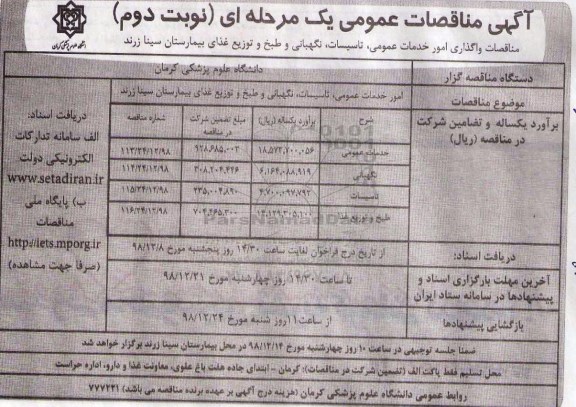 آگهی مناقصات عمومی یک مرحله ای (نوبت دوم)
مناقصات واگذاری امور خدمات عمومی، تاسیسات، نگهبانی و طبخ و توزیع غذای بیمارستان سینا زرند
دستگاه مناقصه گزار
دانشگاه علوم پزشکی کرمان
موضوع مناقصات
امور خدمات عمومی، تاسیسات، نگهبانی و طبخ و توزیع غذای بیمارستان سینا زرند
برآورد یکساله و تضامین شرکت در مناقصه (ریال)
شرح برآورد یکساله (ریال) مبلغ تضمین شرکت در مناقصه شماره مناقصه
خدمات عمومی ۱۸،۵۷۳،۷۰۰،۰۵۶ ۹۲۸،۶۸۵،۰۰۳ ۱۱۳/۲۴/۱۲/۹۸
نگهبانی ۶،۱۶۴،۰۸۸،۹۱۹ ۳۰۸،۲۰۴،۴۴۶ ۱۱۴/۲۴/۱۲/۹۸
تاسیسات ۴،۷۰۰،۰۹۷،۷۹۲ ۲۳۵،۰۰۴،۸۹۰ ۱۱۵/۲۴/۱۲/۹۸
طبخ و توزیع غذا ۱۱۶/۲۴/۱۲/۹۸
ParsNamadData
دریافت اسناد:
الف سامانه تدارکات
الکترونیکی دولت
www.setadiran.ir
ب) پایگاه ملی
مناقصات
http://iets.mporg.ir
(صرفا جهت مشاهده)
دریافت اسناد:
از تاریخ درج فراخوان لغایت ساعت ۱۴/۳۰ روز پنجشنبه مورخ ۹۸/۱۲/۸
آخرین مهلت بارگزاری اسناد و پیشنهادها در سامانه ستاد ایران
تا ساعت ۱۴/۳۰ روز چهارشنبه مورخ ۹۸/۱۲/۲۱
بازگشایی پیشنهادها
از ساعت ۱۱ روز شنبه مورخ ۹۸/۱۲/۲۴
ضمنا جلسه توجیهی در ساعت ۱۰ روز چهارشنبه مورخ ۹۸/۱۲/۱۴ در محل بیمارستان سینا زرند برگزار خواهد شد
محل تسلیم فقط پاکت الف (تضمین شرکت در مناقصات): کرمان - ابتدای جاده هفت باغ علوی، معاونت غذا و دارو، اداره حراست
روابط عمومی دانشگاه علوم پزشکی کرمان (هزینه درج آگهی بر عهده برنده مناقصه می باشد) ۷۷۷۲۲۱